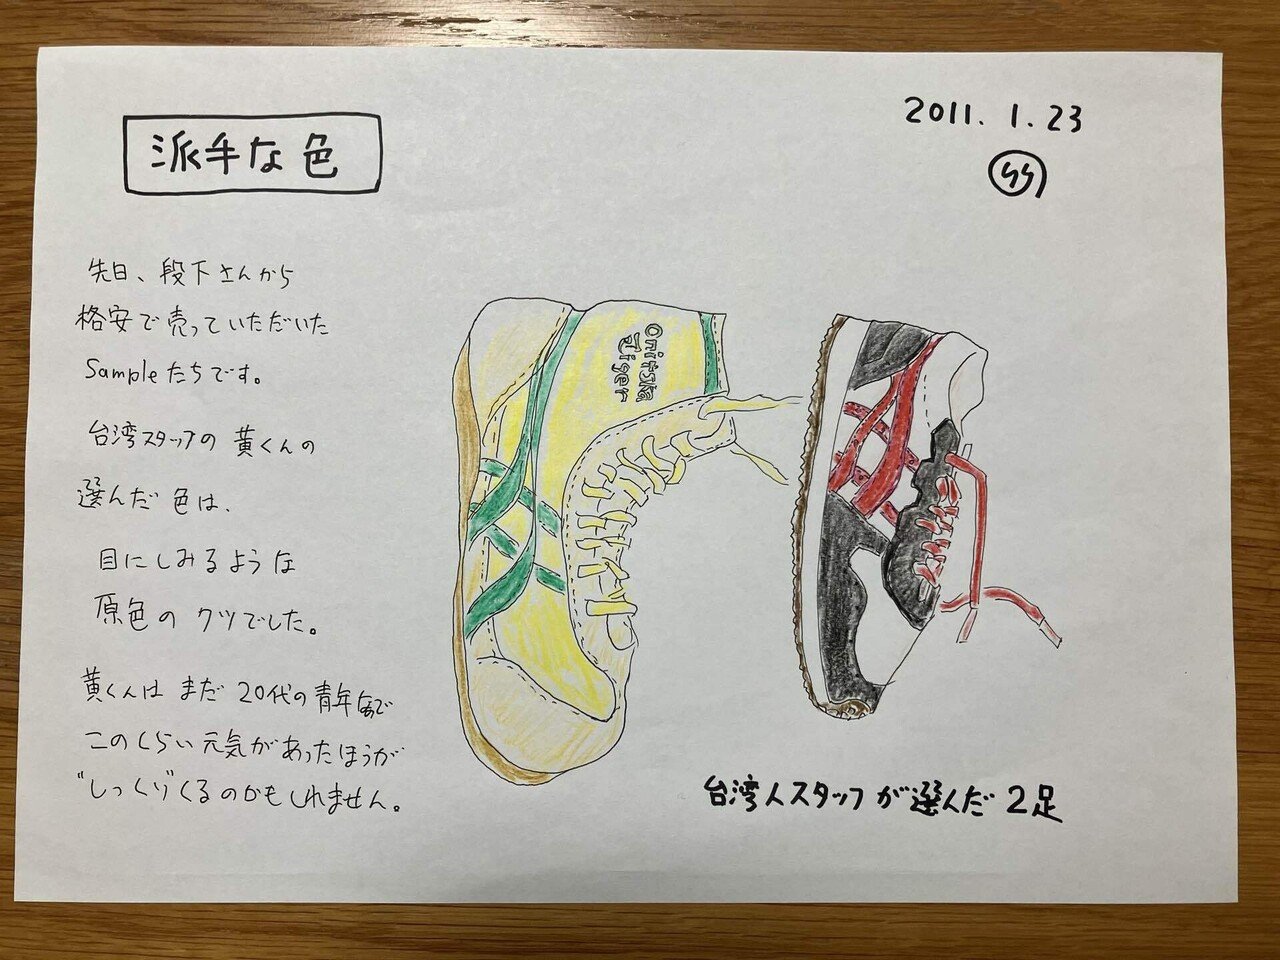 派手な色
2011. 1. 23
先日、段下さんから
格安で売っていただいた
Sampleたちです。
台湾スタッフの黄くんの
選んだ色は、
目にしみるような
原色のクツでした。
黄くんはまだ20代の青年なので
このくらい元気があったほうが
"しっくり"くるのかもしれません。
Onitsuka
Tiger
台湾人スタッフが選んだ2足